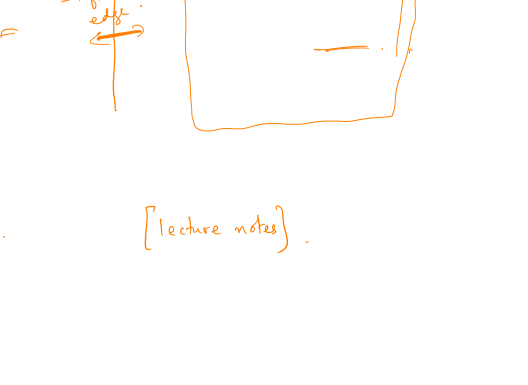 edge.
[lecture notes].